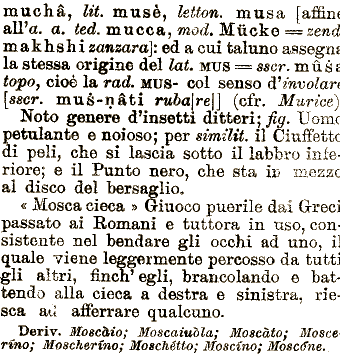 muchâ, lit. musè, letton. musa [affine
all'a. a. ted. mucca, mod. Mücke = zend
makhshi zanzara]: ed a cui taluno assegna
la stessa origine del lat. MUS = sscr. mûṡa
topo, cioé la rad. MUS- col senso d'involare
[sscr. muṡ-ṇâti ruba[re]] (cfr. Murice)
Noto genere d'insetti ditteri; fig. Uomo
petulante e noioso; per similit. il Ciuffetto
di peli, che si lascia sotto il labbro infe-
riore; e il Punto nero, che sta in mezzo
al disco del bersaglio.
« Mosca cieca » Giuoco puerile dai Greci
passato ai Romani e tuttora in uso, con-
sistente nel bendare gli occhi ad uno, il
quale viene leggermente percosso da tutti
gli altri, finch' egli, brancolando e bat-
tendo alla cieca a destra e sinistra, rie-
sca ad afferrare qualcuno.
Deriv. Moscàio; Moscaiuòla; Moscàto; Mosce-
rino; Moscheríno; Moschétto; Moscíno; Moscóne.